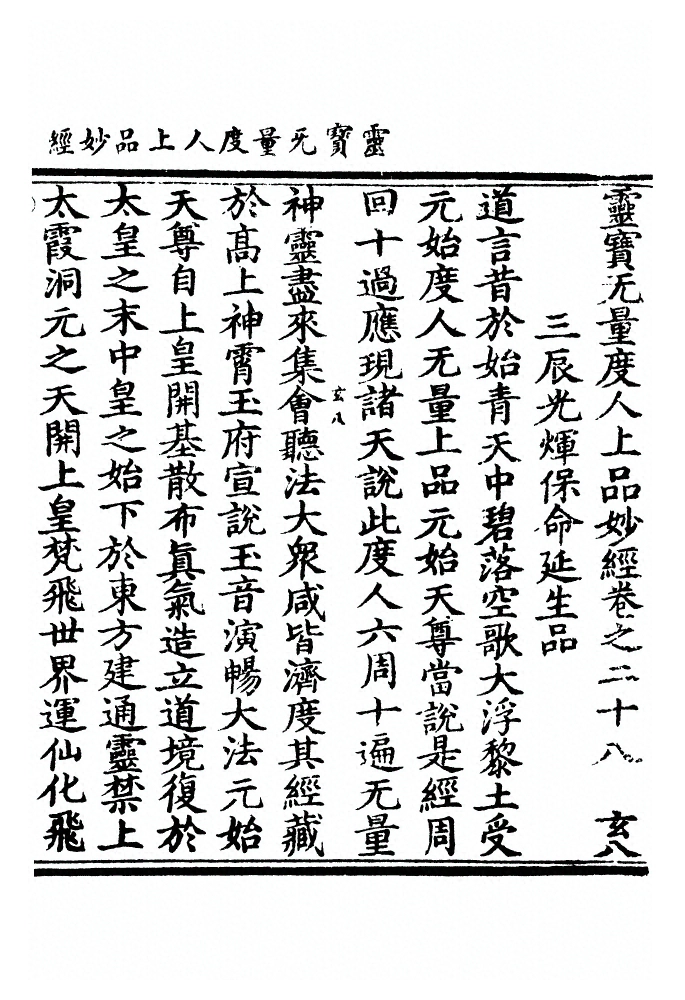 靈寳无量度人上品妙經
靈寳无量度人上品妙經卷之二十八 玄八
三辰光煇保命延生品
道言昔於始青天中碧落空歌大浮黎土受
元始度人无量上品元始天尊當說是經周
回十過應現諸天說此度人六周十遍无量
玄八
神靈盡來集會聽法大衆咸皆濟度其經藏
於髙上神霄玉府宣說玉音演暢大法元始
天尊自上皇開基散布眞氣造立道境復於
太皇之末中皇之始下於東方建通靈禁上
太霞洞元之天開上皇梵飛世界運仙化飛